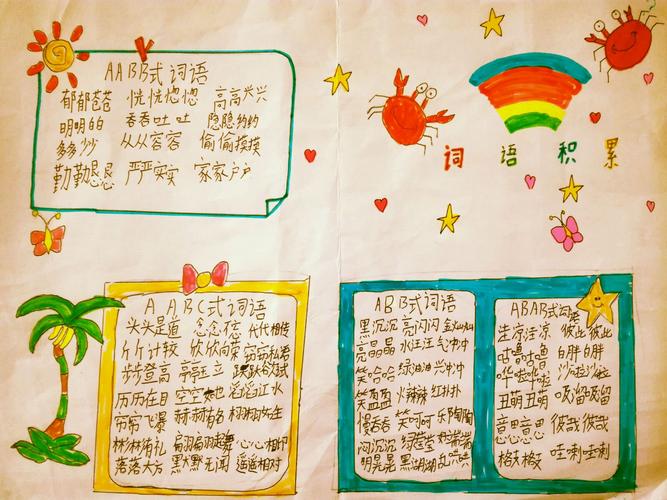 AABB式词语
郁郁苍苍 恍恍惚惚 高高兴兴
明明白 吞吞吐吐 隐隐约约
多多少 从从容容 偷偷摸摸
勤勤恳恳 严严实实 家家户户
词语积累
AABC式词语
头头是道 念念不忘 代代相传
斤斤计较 欣欣向荣
步步登高 亭亭玉立 跃跃欲试
历历在目 空空如也 滔滔江水
彬彬有礼 翩翩起舞 心心相印
落落大方 默默无闻 遥遥相对
ABB式词语
黑沉沉 亮闪闪 金灿灿
亮晶晶 水汪汪 气冲冲
笑哈哈 绿油油 兴冲冲
笑盈盈 火辣辣 红扑扑
慢吞吞 笑呵呵 乐陶陶
闷沉沉
明晃晃 黑湖湖 乱哄哄
ABAB式词
生凉生凉 彼此彼此
咕噜咕噜 白胖白胖
哗啦哗啦 沙啦沙啦
丑萌丑萌 吸留吸留
彼哉彼哉
哇喇哇喇